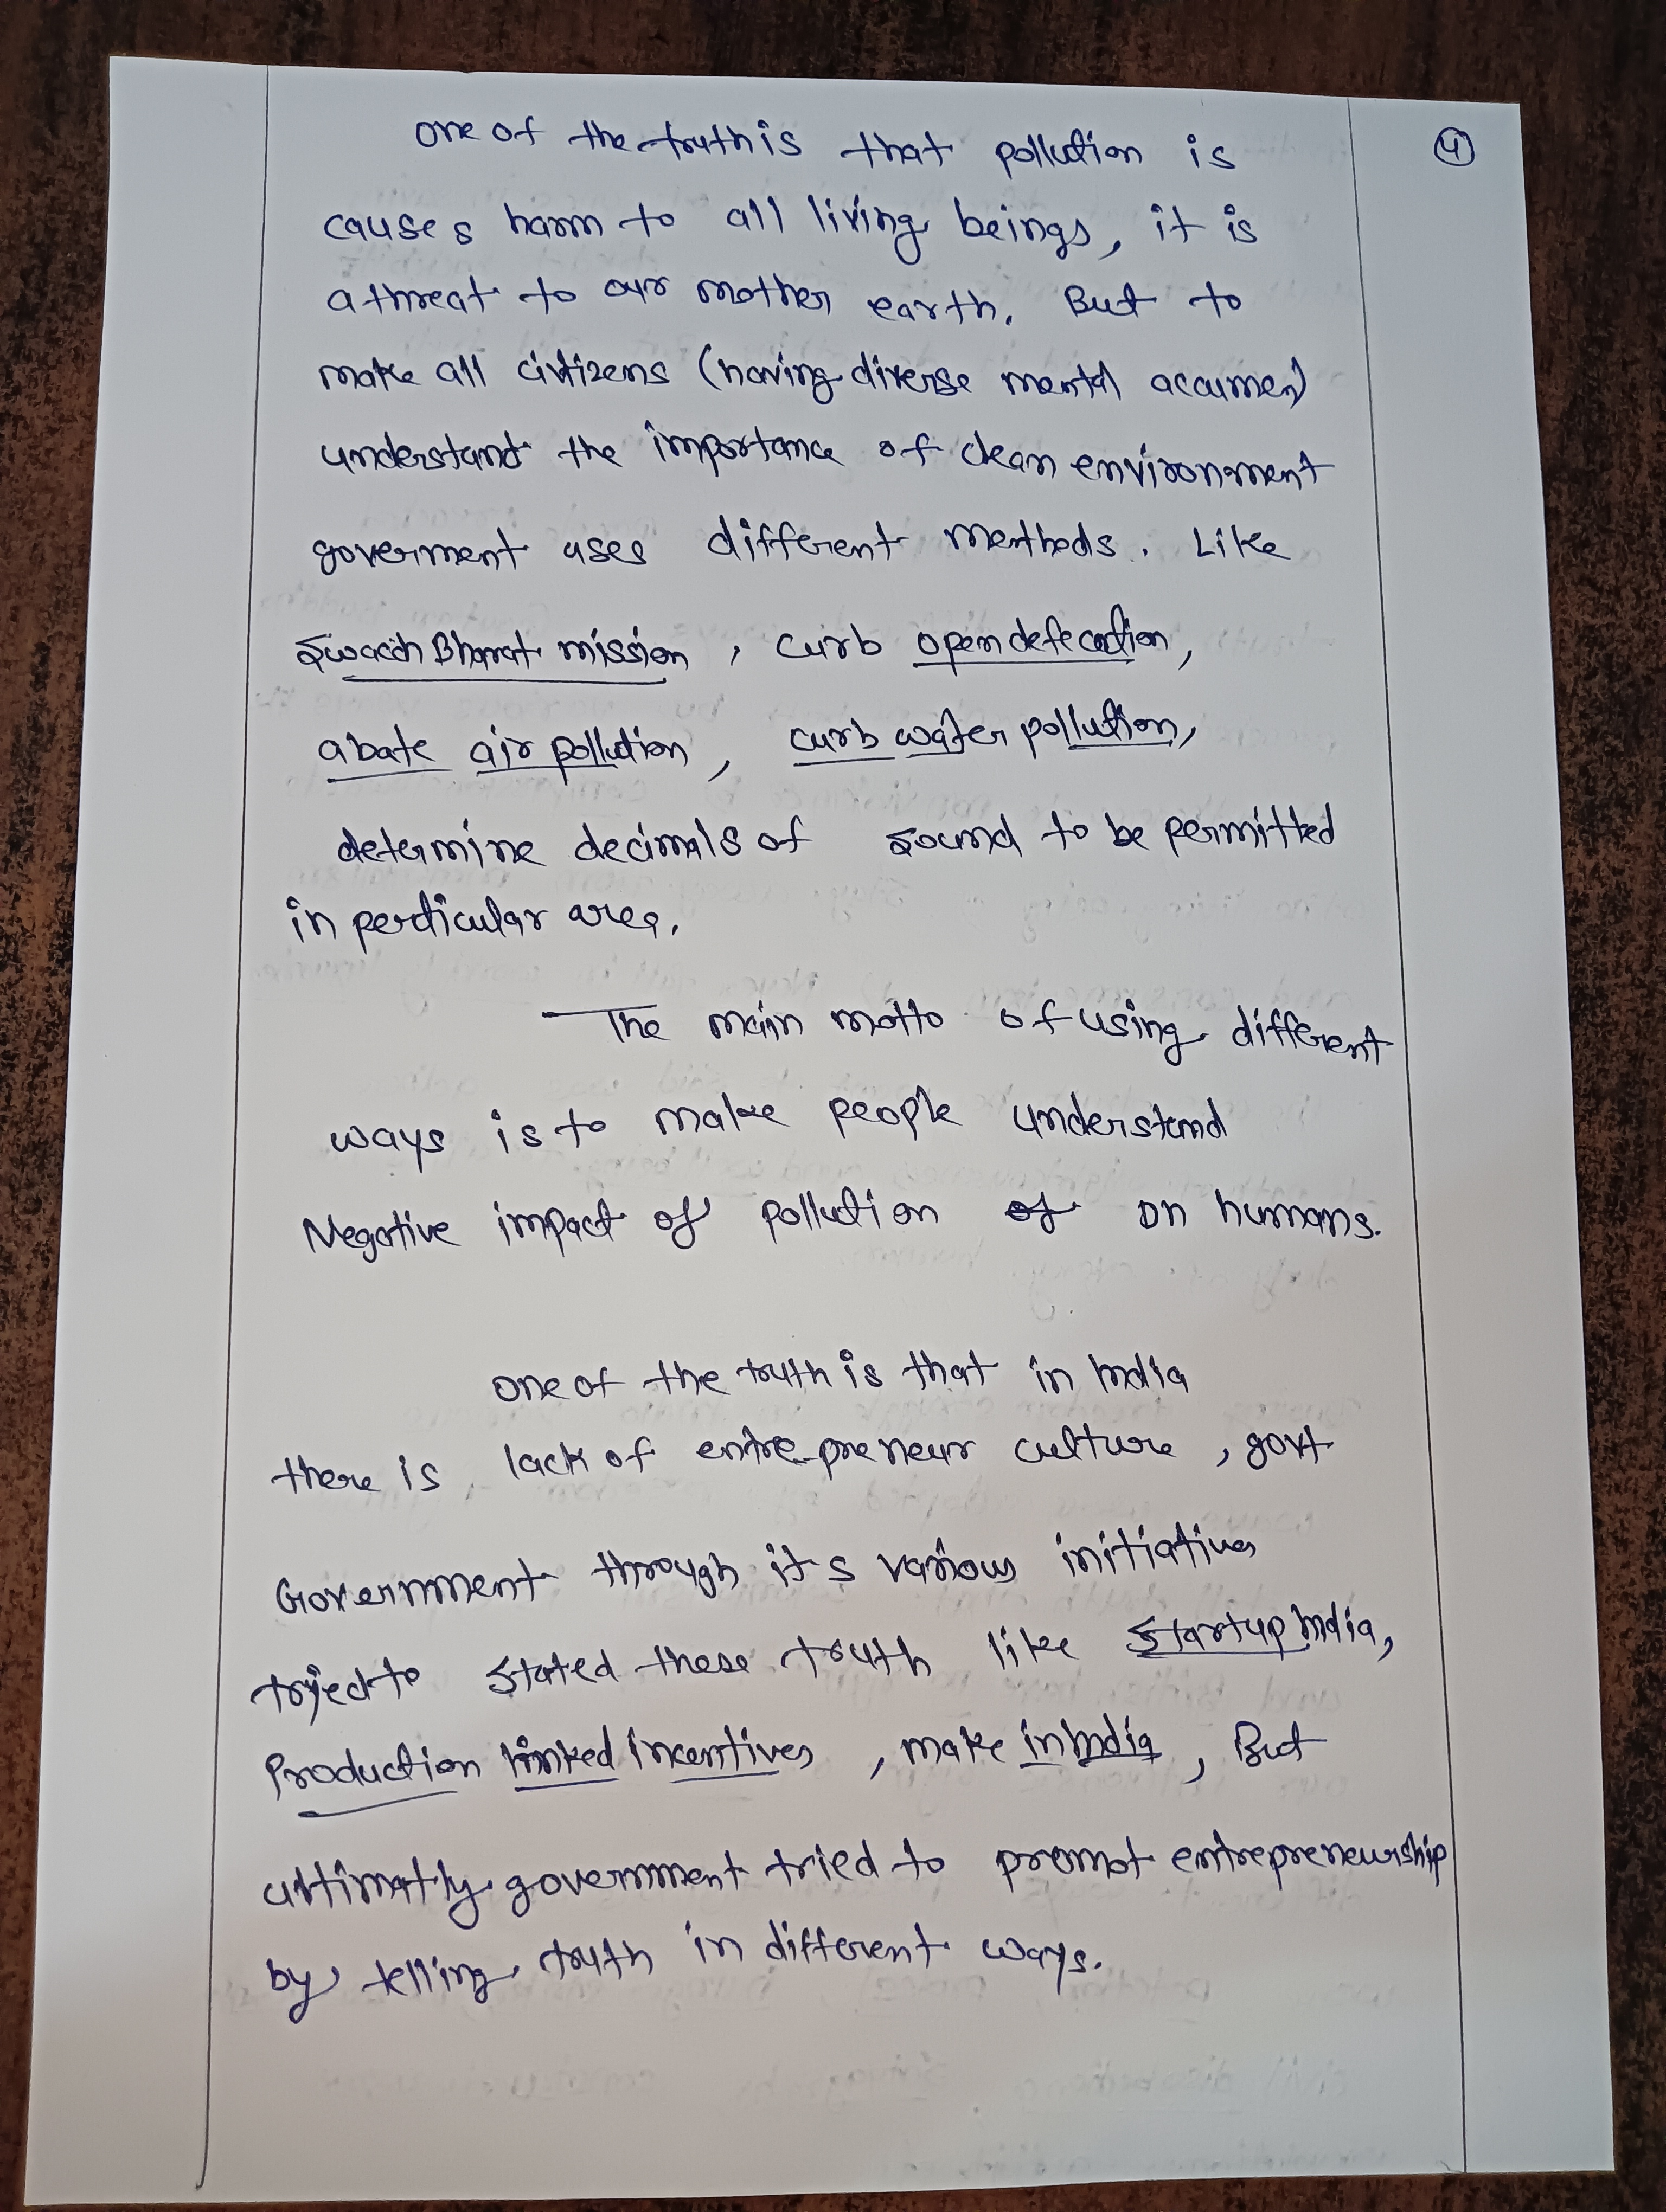 ④
one of the truth is that pollution is
causes harm to all living beings, it is
a threat to our mother earth. But to
make all citizens (having diverse mental accumen)
understand the importance of clean environment
goverment uses different methods. Like
Swacch Bharat mission, curb open defecation,
abate air pollution, curb water pollution,
determine decimals of sound to be permitted
in perticular area.
The main motto of using different
ways is to make people understand
Negative impact of pollution of on humans.
one of the truth is that in India
there is lack of entrepreneur culture, govt
Government through it's various initiatives
tried to stated these truth like Startup India,
Production linked incentives, make in India, But
ultimatly government tried to promot entrepreneurship
by telling truth in different ways.